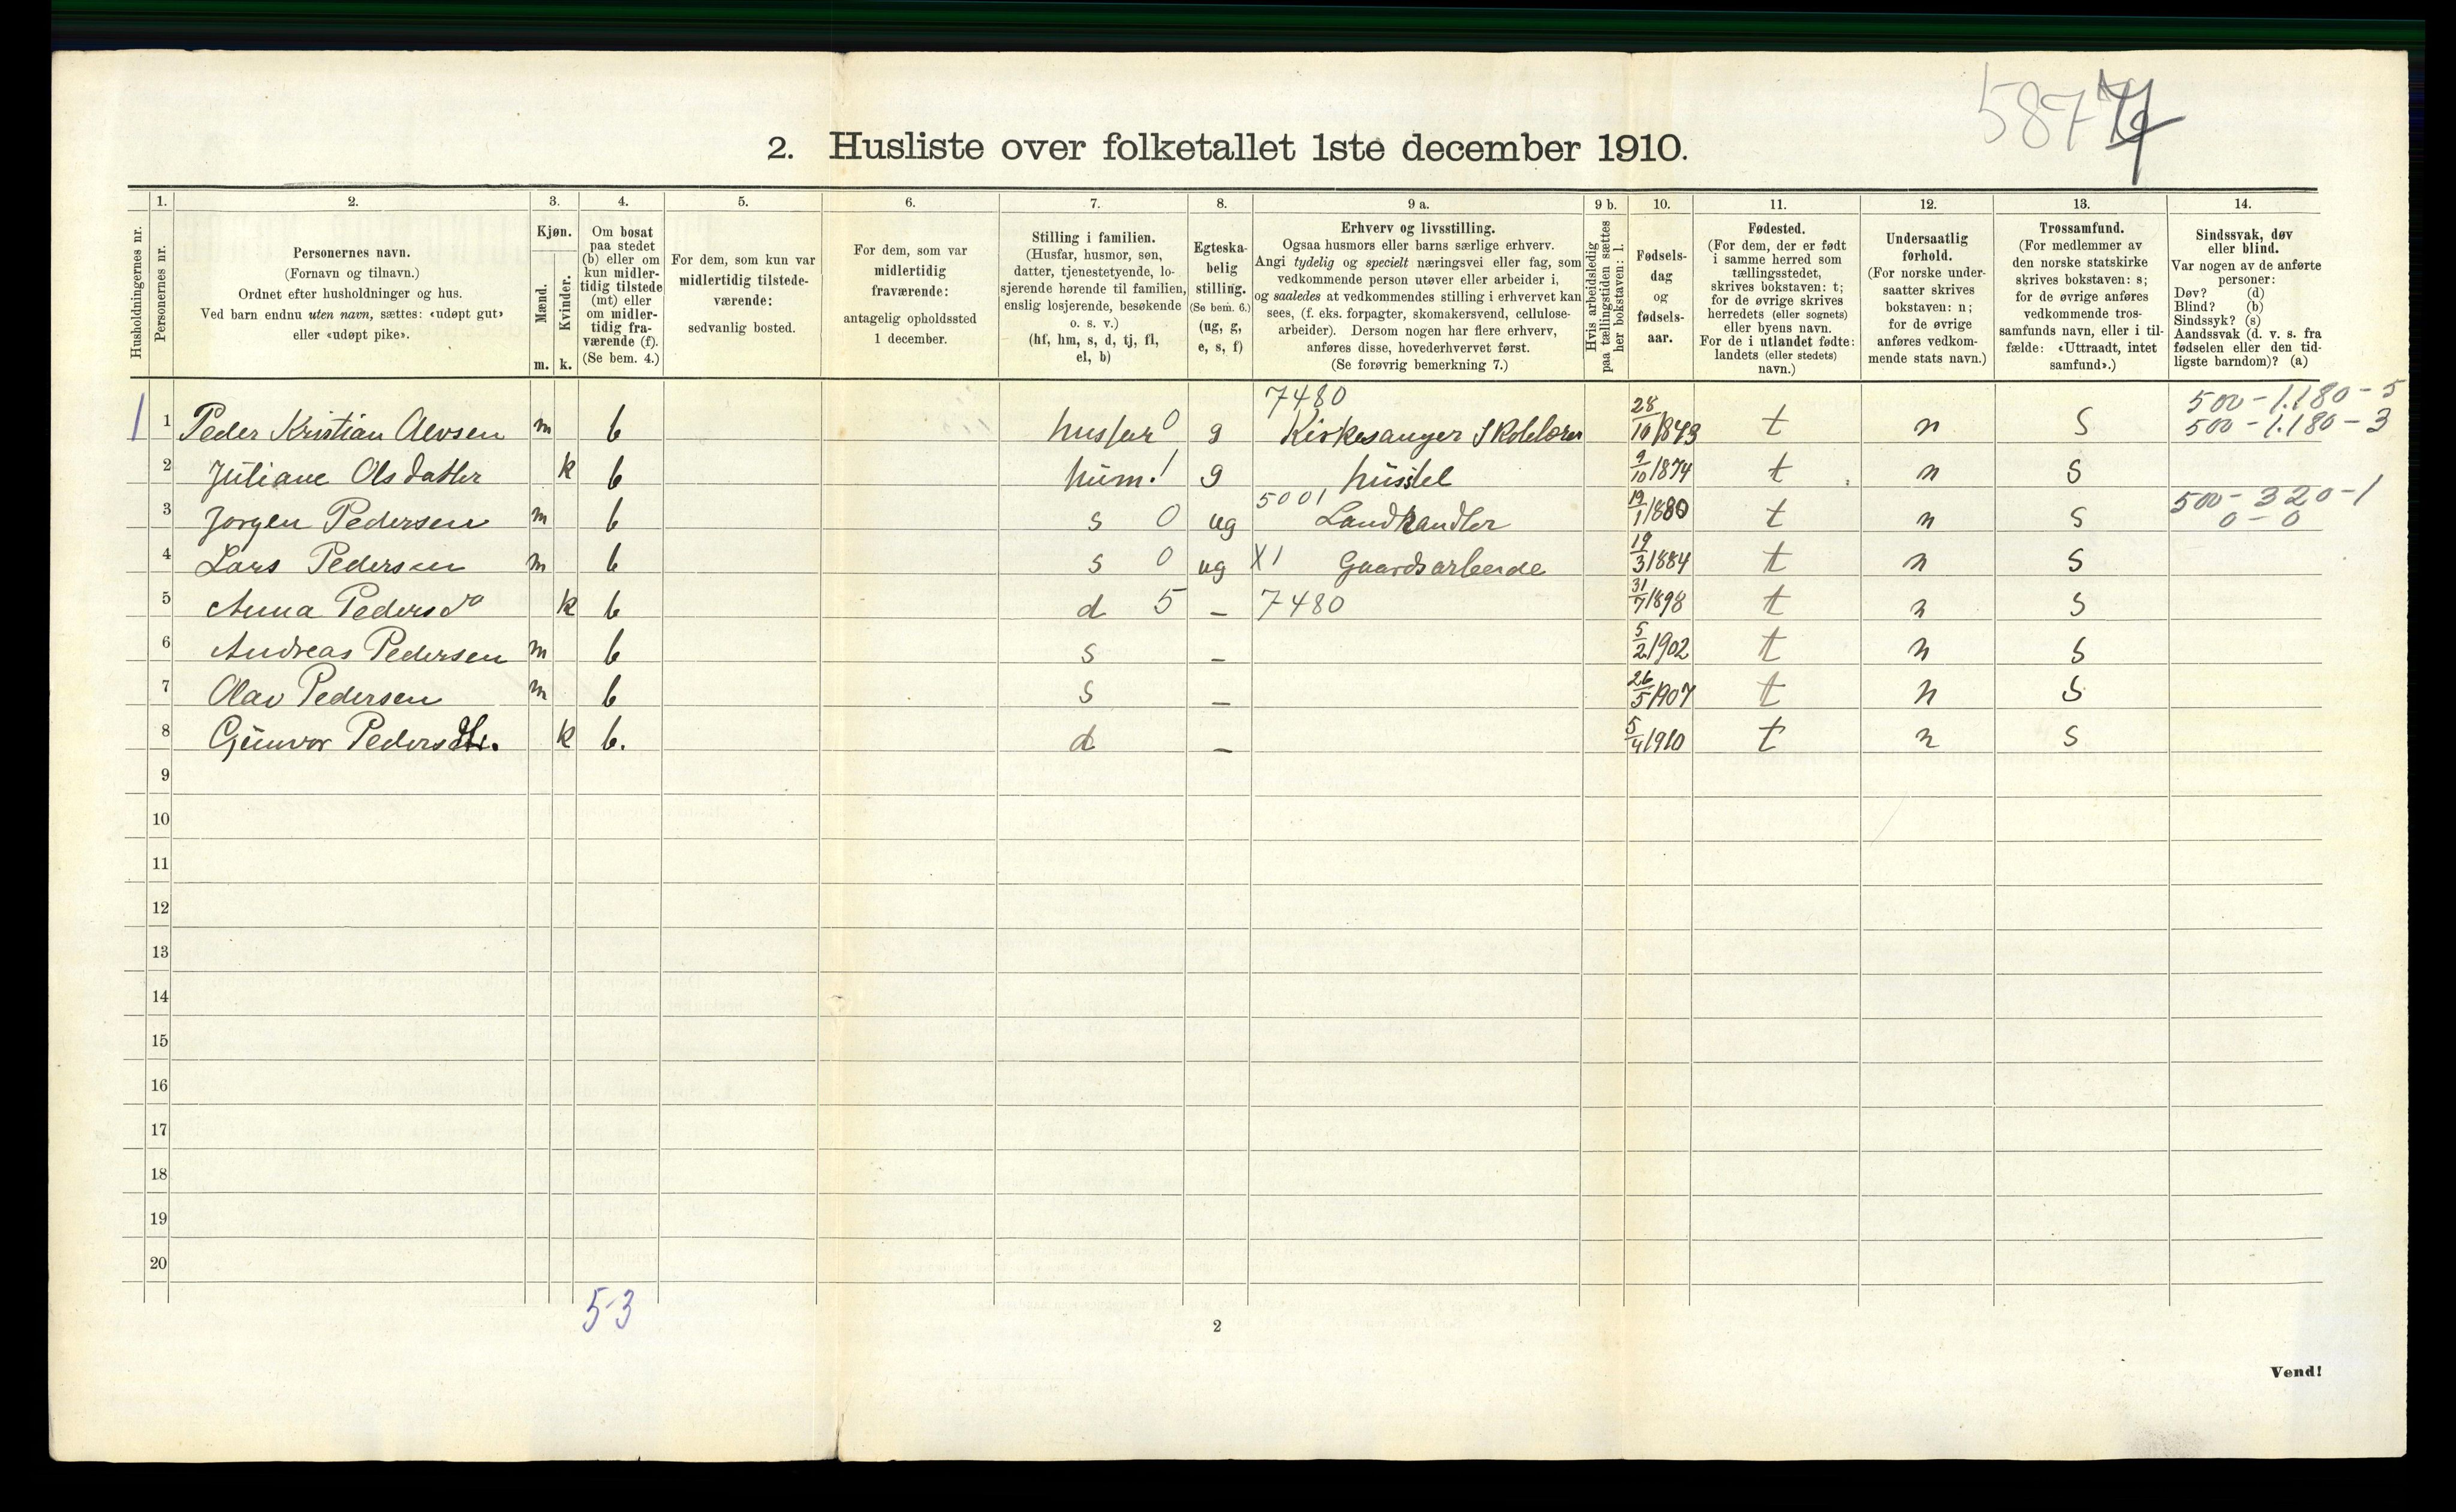 5877
2. Husliste over folketallet 1ste december 1910.
Husholdningernes nr.
1.
Personernes nr.
2.
Personernes navn.
(Fornavn og tilnavn.)
Ordnet efter husholdninger og hus.
Ved barn endnu uten navn, sættes: «udøpt gut»
eller «udøpt pike».
3.
Kjøn.
Mænd.
Kvinder.
m. k.
4.
Om bosat
paa stedet
(b) eller om
kun midler-
tidig tilstede
(mt) eller
om midler-
tidig fra-
værende (f).
(Se bem. 4.)
5.
For dem, som kun var
midlertidig tilstede-
værende:
sedvanlig bosted.
6.
For dem, som var
midlertidig
fraværende:
antagelig opholdssted
1 december.
7.
Stilling i familien.
(Husfar, husmor, søn,
datter, tjenestetyende, lo-
sjerende hørende til familien,
enslig losjerende, besøkende
o. s. v.)
(hf, hm, s, d, tj, fl,
el, b)
8.
Egteska-
belig
stilling.
(Se bem. 6.)
(ug, g,
e, s, f)
9 a.
Erhverv og livsstilling.
Ogsaa husmors eller barns særlige erhverv.
Angi tydelig og specielt næringsvei eller fag, som
vedkommende person utøver eller arbeider i,
og saaledes at vedkommendes stilling i erhvervet kan
sees, (f. eks. forpagter, skomakersvend, cellulose-
arbeider). Dersom nogen har flere erhverv,
anføres disse, hovederhvervet først.
(Se forøvrig bemerkning 7.)
9 b.
Hvis arbeidsledig
paa tællingstiden sættes
her bokstaven: l.
10.
Fødsels-
dag
og
fødsels-
aar.
11.
Fødested.
(For dem, der er født
i samme herred som
tællingsstedet,
skrives bokstaven: t;
for de øvrige skrives
herredets (eller sognets)
eller byens navn.
For de i utlandet fødte:
landets (eller stedets)
navn.)
12.
Undersaatlig
forhold.
(For norske under-
saatter skrives
bokstaven: n;
for de øvrige
anføres vedkom-
mende stats navn.)
13.
Trossamfund.
(For medlemmer av
den norske statskirke
skrives bokstaven: s;
for de øvrige anføres
vedkommende tros-
samfunds navn, eller i til-
fælde: «Uttraadt, intet
samfund».)
14.
Sindssvak, døv
eller blind.
Var nogen av de anførte
personer:
Døv? (d)
Blind? (b)
Sindssyk? (s)
Aandssvak (d. v. s. fra
fødselen eller den tid-
ligste barndom)? (a)
7480 500-1.180-5
1 1 Peder Kristian m b husfar 0 g Kirkesanger Skolelærer 28/10 1843 t n s 500-1.180-3
2 Juliane Olsdatter k b hum.! g husstel 9/10 1874 t n s
5001 500-320-1
3 Jorgen Pedersen m b s 0 ug Landhandler 19/1 1880 t n s 0-0
4 Lars Pedersen m b s 0 ug X1 Gaardsarbeide 19/3 1884 t n s
5 Anna Pedersd k b d 5 - 7480 31/7 1898 t n s
6 Andreas Pedersen m b s - 5/2 1902 t n s
7 Olav Pedersen m b s - 26/5 1907 t n s
8 Gunvor Pedersdtr. k b. d - 5/4 1910 t n s
9
10
11
12
13
14
15
16
17
18
19
20
5-3
2
Vend!